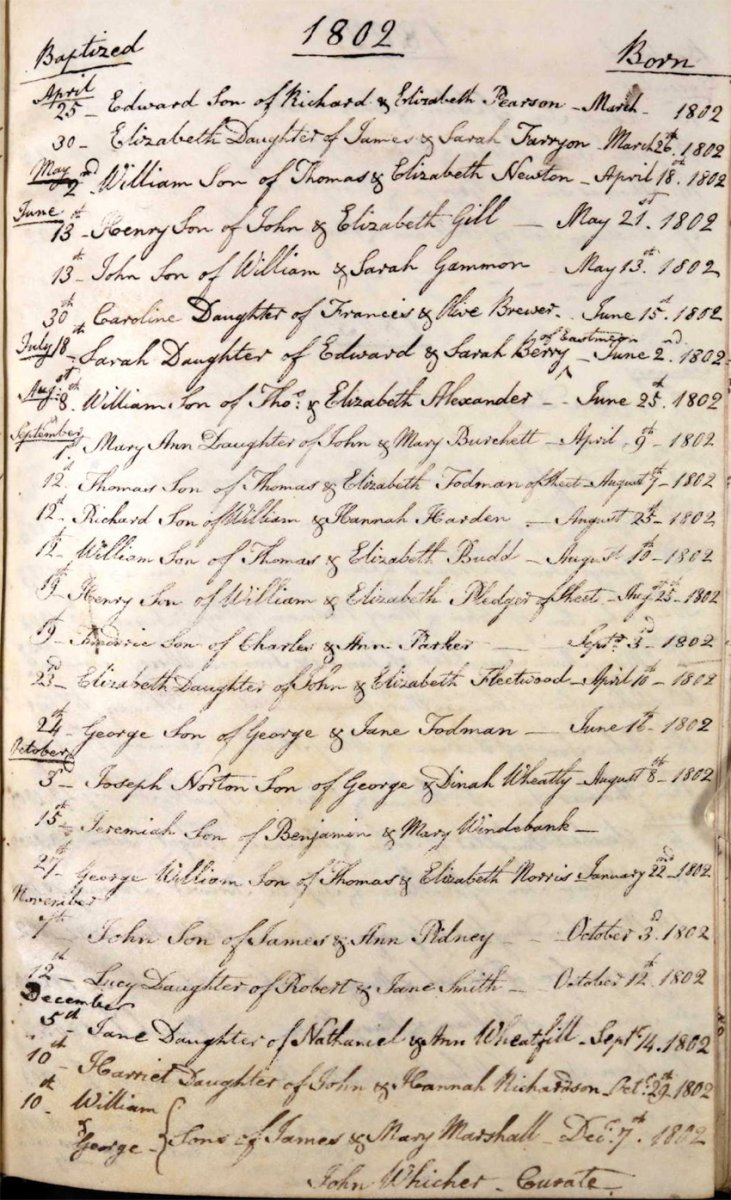 1802
Baptized Born
April
25 - Edward Son of Richard & Elizabeth Pearson - March - 1802
30 - Elizabeth Daughter of James & Sarah Turryon - March 26th. 1802
May
2nd William Son of Thomas & Elizabeth Newton - April 18th. 1802
June
13th - Henry Son of John & Elizabeth Gill - May 21st. 1802
13th - John Son of William & Sarah Gammon - May 13th. 1802
30th - Caroline Daughter of Francis & Olive Brewer - June 15th. 1802
July 18th - Sarah Daughter of Edward & Sarah Berry ^ of Eastmeon - June 2nd. 1802
Augst: 8th. William Son of Thos. & Elizabeth Alexander - June 25th. 1802
September
1st Mary Ann Daughter of John & Mary Burchett - April 9th - 1802
12th Thomas Son of Thomas & Elizabeth Todman of Sheet - August 7th - 1802
12th - Richard Son of William & Hannah Harden - August 25th - 1802
12th - William Son of Thomas & Elizabeth Budd - August 10th - 1802
19th - Henry Son of William & Elizabeth Pledger of Sheet - Augst 25th - 1802
19th - Son of Charles & Ann Parker - Septr. 3d - 1802
23d - Elizabeth Daughter of John & Elizabeth Fleetwood - April 10th - 1802
24th - George Son of George & Jane Todman - June 16th - 1802
October
3d - Joseph Norton Son of George & Dinah Wheatly - August 8th - 1802
15th - Jeremiah Son of Benjamin & Mary Windebank -
27th - George William Son of Thomas & Elizabeth Norris - January 22nd - 1802
November
7th - John Son of James & Ann Pidney - October 3d. 1802
12th - Lucy Daughter of Robert & Jane Smith - October 12th. 1802
December
5th - Jane Daughter of Nathaniel & Ann Wheatfill - Septr. 14. 1802
10th - Harriet Daughter of John & Hannah Richardson - Octr. 29th - 1802
10th - William
& George - { Sons of James & Mary Marshall - Decr. 7th. 1802
John Whicher - Curate -